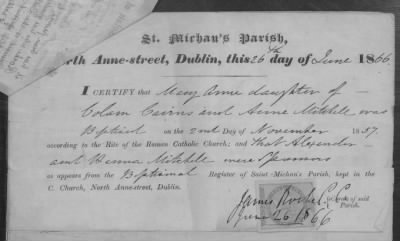 St. Michan's Parish,
North Anne-street, Dublin, this 26th day of June 1866.
I CERTIFY that Mary Anne daughter of
Colam Cairns and Anne Mitchell was
Baptized on the 2nd Day of November 1857.
according to the Rite of the Roman Catholic Church; and that Alexander
and Hanna Mitchell were Sponsors
as appears from the Baptismal Register of Saint-Michan's Parish, kept in the
C. Church, North Anne-street, Dublin.
James Roche C.C. of said
Parish.
June 26 1866